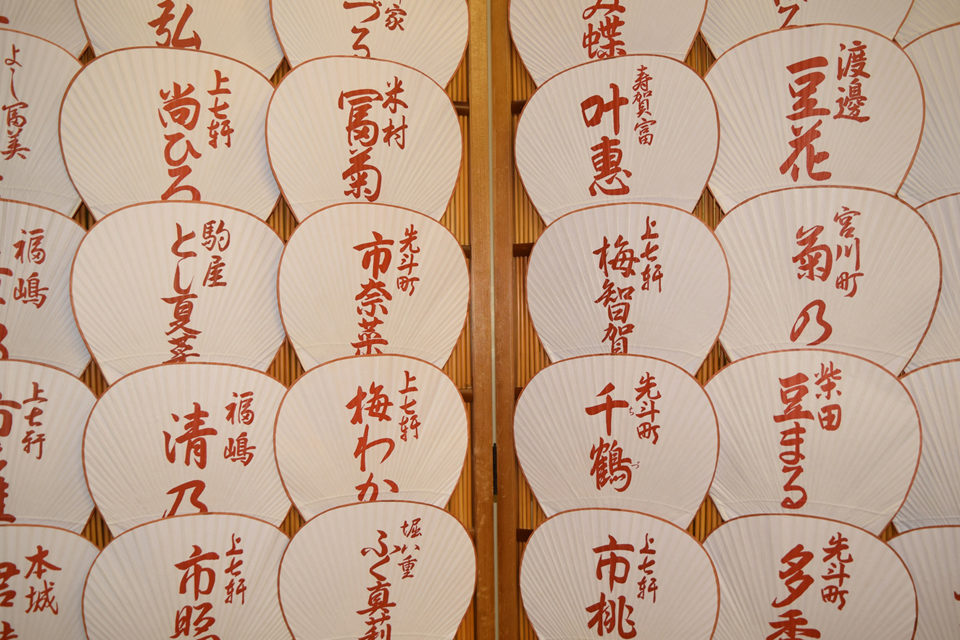 弘
づる
家
み蝶
よし
冨美
上七軒
尚ひろ
米村
冨菊
寿賀富
叶惠
渡邉
豆花
福嶋
乃
駒屋
とし夏菜
先斗町
市奈菜
上七軒
梅智賀
宮川町
菊乃
上七軒
福嶋
清乃
上七軒
梅わか
先斗町
千鶴
ちづ
柴田
豆まる
本城
上七軒
市
堀八重
ふく真莉
上七軒
市桃
先斗町
多香